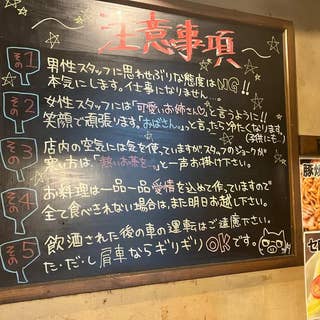 注意事項
その1 男性スタッフに思わせぶりな態度はNG!!
本気にします。仕事になりません…。
その2 女性スタッフには「可愛いお姉さん♡」と言うように!!
笑顔で頑張ります。「おばさん。」と言ったら冷たくなります
(子供にも…)
その3 店内の空気には気を使ていますが、スタッフのジョークが
寒い方は、「熱いお茶を…」と一声お掛け下さい。
その4 お料理は一品一品愛情を込めて作っていますので
全て食べきれない場合は、また明日お越し下さい。
その5 飲酒された後の車の運転はご遠慮下さい。
た・だ・し肩車ならギリギリOKです。
豚
七